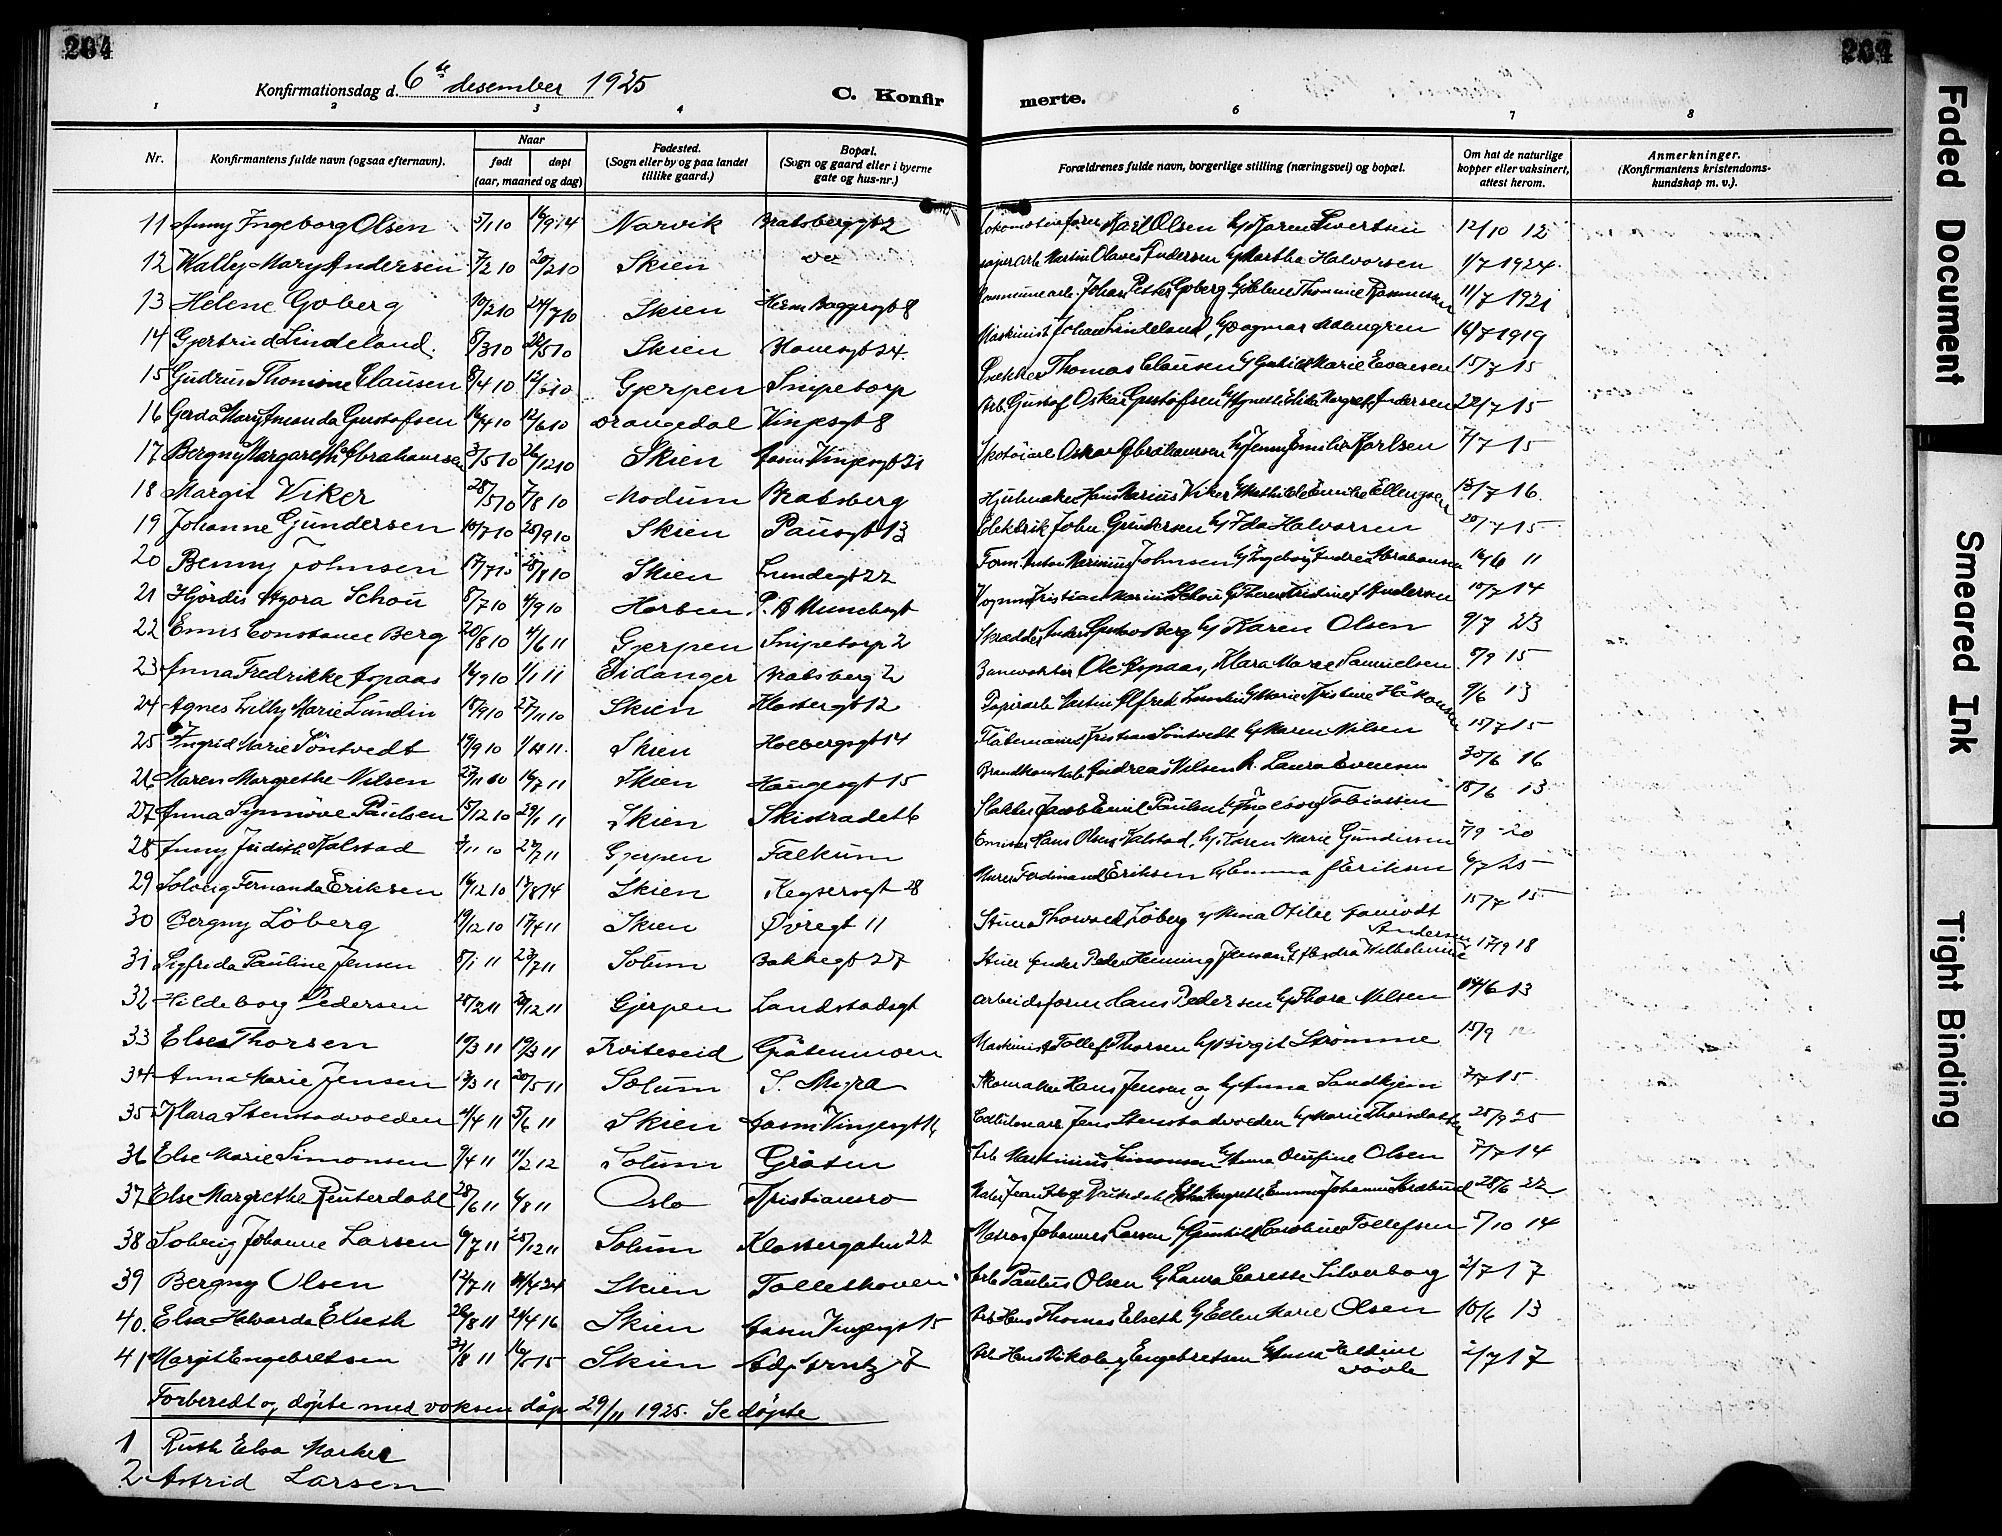 204
204
Konfirmationsdag d. 6te desember 1925
C. Konfir merte.
1 2 3 4 5 6 7 8
Nr. Konfirmantens fulde navn (ogsaa efternavn). Naar født døpt (aar, maaned og dag) Fødested. (Sogn eller by og paa landet tillike gaard.) Bopæl. (Sogn og gaard eller i byerne gate og hus-nr.) Forældrenes fulde navn, borgerlige stilling (næringsvei) og bopæl. Om hat de naturlige kopper eller vaksinert, attest herom. Anmerkninger. (Konfirmantens kristendoms- kundskap m. v.).
11 Anny Ingeborg Olsen 5/1 10 Narvik Karl Olsen Karen Sivertsen 12/10 12
12 Wally Mary Andersen 7/2 10 20/2 10 Skien do Martin Olaves Andersen Martha Halvorsen 1/7 1924
13 Helene Goberg 10/2 10 24/7 10 Skien Johan Petter Goberg Helene Thomine Rasmussen 11/7 1921
14 Gjertrud Lindeland 8/3 10 22/5 10 Skien 24. Maskinist Johan Lindeland, Dagmar 16/7 1919
15 Gudrun Thomine Clausen 8/4 10 Gjerpen Snipetorp Thomas Clausen Marie Evensen 15/7 15
16 Gerda Mary Amanda Gustafsen 16/4 10 12/6 10 Drangedal Vinjesgt 8 Arb. Gustaf Oskar Gustafsen Margrete Andersen 22/7 15
17 Bergny Margarethe Abrahamsen 3/5 10 26/12 10 Skien Aasm Vinjesgt 21 Oskar Abrahamsen Jenny Emilie Karlsen 7/7 15
18 Margit Viker 28/5 10 7/8 10 Modum Bratsberg Hjulmaker Hans Marius Viker Mathilde Emilie Ellingsen 13/7 16
19 Johanne Gundersen 10/7 10 25/9 10 Skien Pausgt 13 Elektrik John Gundersen Ida Halvorsen 20/7 15
20 Benny Johnsen 17/7 10 28/8 10 Skien Lundegt 22 Form. Anton Marinius Johnsen Ingeborg Andrea Abrahamsen 16/6 11
21 Hjördis Schou 8/7 10 4/9 10 P. A. Munchsgt Kristian Marius Schou Andersen 10/7 14
22 Constance Berg 20/8 10 4/6 11 Gjerpen Snipetorp 2 Skrædder Anders Gustav Berg Karen Olsen 9/7 23
23 Anna Fredrikke Aspaas 14/9 10 1/1 11 Eidanger Bratsberg 2 Banevokter Ole Aspaas, Klara Marie Samuelsen 8/9 15
24 Agnes Lilly Marie Lundin 18/9 10 27/11 10 Skien Klostergt 12 Papirarb Martin Alfred Lundin Marie Kristine Håkonsen 9/6 13
25 Ingrid Marie Söntvedt 19/9 10 Skien Holbergsgt 14 Kristian Söntvedt Maren Nilsen 15/7 15
26 Maren Margrethe Nilsen 27/11 10 16/7 11 Skien Haugesgt 15 Brandkonstabl Andreas Nilsen Laura Evensen 30/6 16
27 Anna Synnöve Paulsen 15/12 10 29/1 11 Skien Skistredet 6 Slakter Jacob Emil Paulsen Ingeborg Tobiassen 18/6 13
28 Anny Judith Kalstad 3/11 10 23/7 11 Gjerpen Falkum Hans Olsen Kalstad, Karen Marie Gundersen 7/9 20
29 Solveig Fernanda Eriksen 16/12 10 17/8 14 Skien Keysersgt 28 Murer Ferdinand Eriksen Emma Eriksen 6/7 25
30 Bergny Löberg 19/12 10 17/4 11 Skien Øvregt 11 Löberg Mina Otilie 15/7 15
31 Sigfrida Pauline Jensen 8/1 11 23/7 11 Solum Bakkegt 27 Peder Henning Jensen Wilhelmine Andersen 17/9 18
32 Hildeborg Pedersen 28/2 11 Gjerpen Landstadsgt arbeidsform Hans Pedersen Thora Nilsen 14/6 13
33 Else Thorsen 10/3 11 19/3 11 Kviteseid Gråtenmoen Maskinist Tollef Thorsen Birgit Strömme 15/9
34 Anna Marie Jensen 13/3 11 20/5 11 Solum S. Myra Skomaker Hans Jensen og Anna Sandkjern 7/7 15
35 Klara Stenstadvolden 4/4 11 5/6 11 Skien Aasm Vinjesgt 16 Jens Stenstadvolden Marie Thorsdatter 25/9 25
36 Else Marie Simonsen 9/4 11 11/2 12 Solum Gråten Arb Martinius Simonsen Anna Olufine Olsen 7/7 14
37 Else Margrethe Reuterdahl 28/6 11 6/8 11 Oslo Kristiansro Margrethe Emma Johanne Nordlund 28/6 22
38 Solveig Johanne Larsen 6/7 11 25/12 11 Solum Klostergaten 22 Matros Johannes Larsen Gunhild Caroline Tollefsen 5/10 14
39 Bergny Olsen 12/7 11 4/4 24 Skien Tollefshaven Arb Paulus Olsen Laura Carette Silverborg 2/7 17
40. Elsa Halvarda Elseth 26/8 11 24/4 16 Skien Aasm Vinjesgt 15 Arb Hans Thomas Elseth Ellen Marie Olsen 10/6 13
41 Margit Engebretsen 31/8 11 16/5 15 Skien Adj. Arntz. 7 Arb Hans Nikolay Engebretsen Anna 2/7 17
Forberedt og döpte med voksen dåp 29/11 1925. Se döpte
1 Ruth Elsa
2 Astrid Larsen
Faded Document
Smeared Ink
Tight Binding